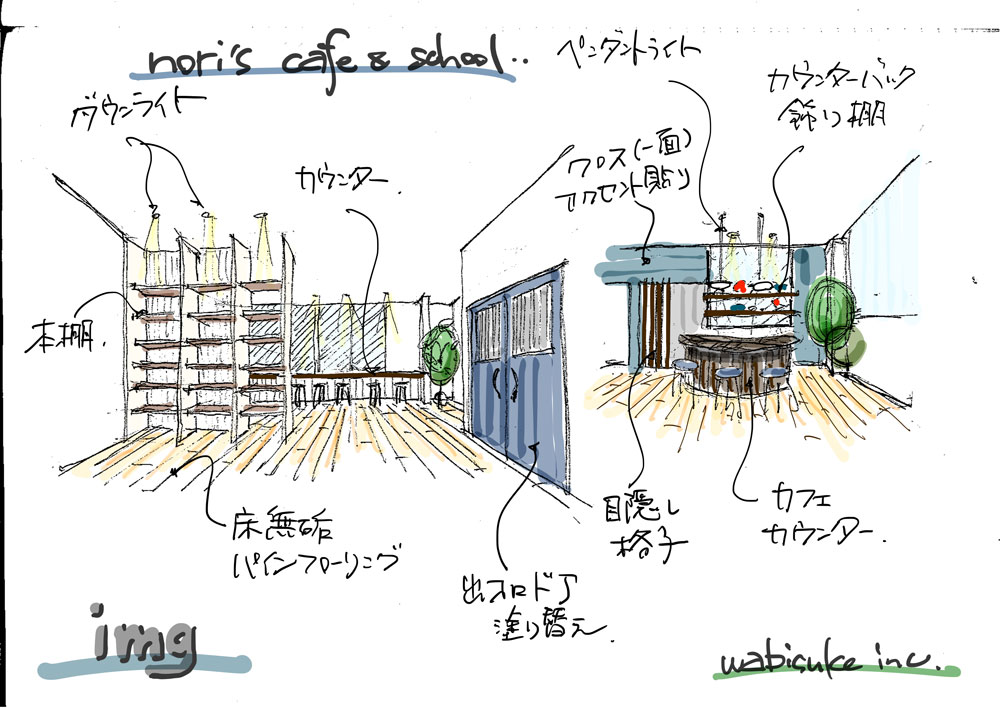 nori's cafe & school..
ペンダントライト
ダウンライト
カウンターバック
飾り棚
カウンター.
クロス(一面)
アクセント貼り
本棚.
床無垢
パインフローリング
出入口ドア
塗り替え.
目隠し
格子
カフェ
カウンター.
img
wabisuke inc.